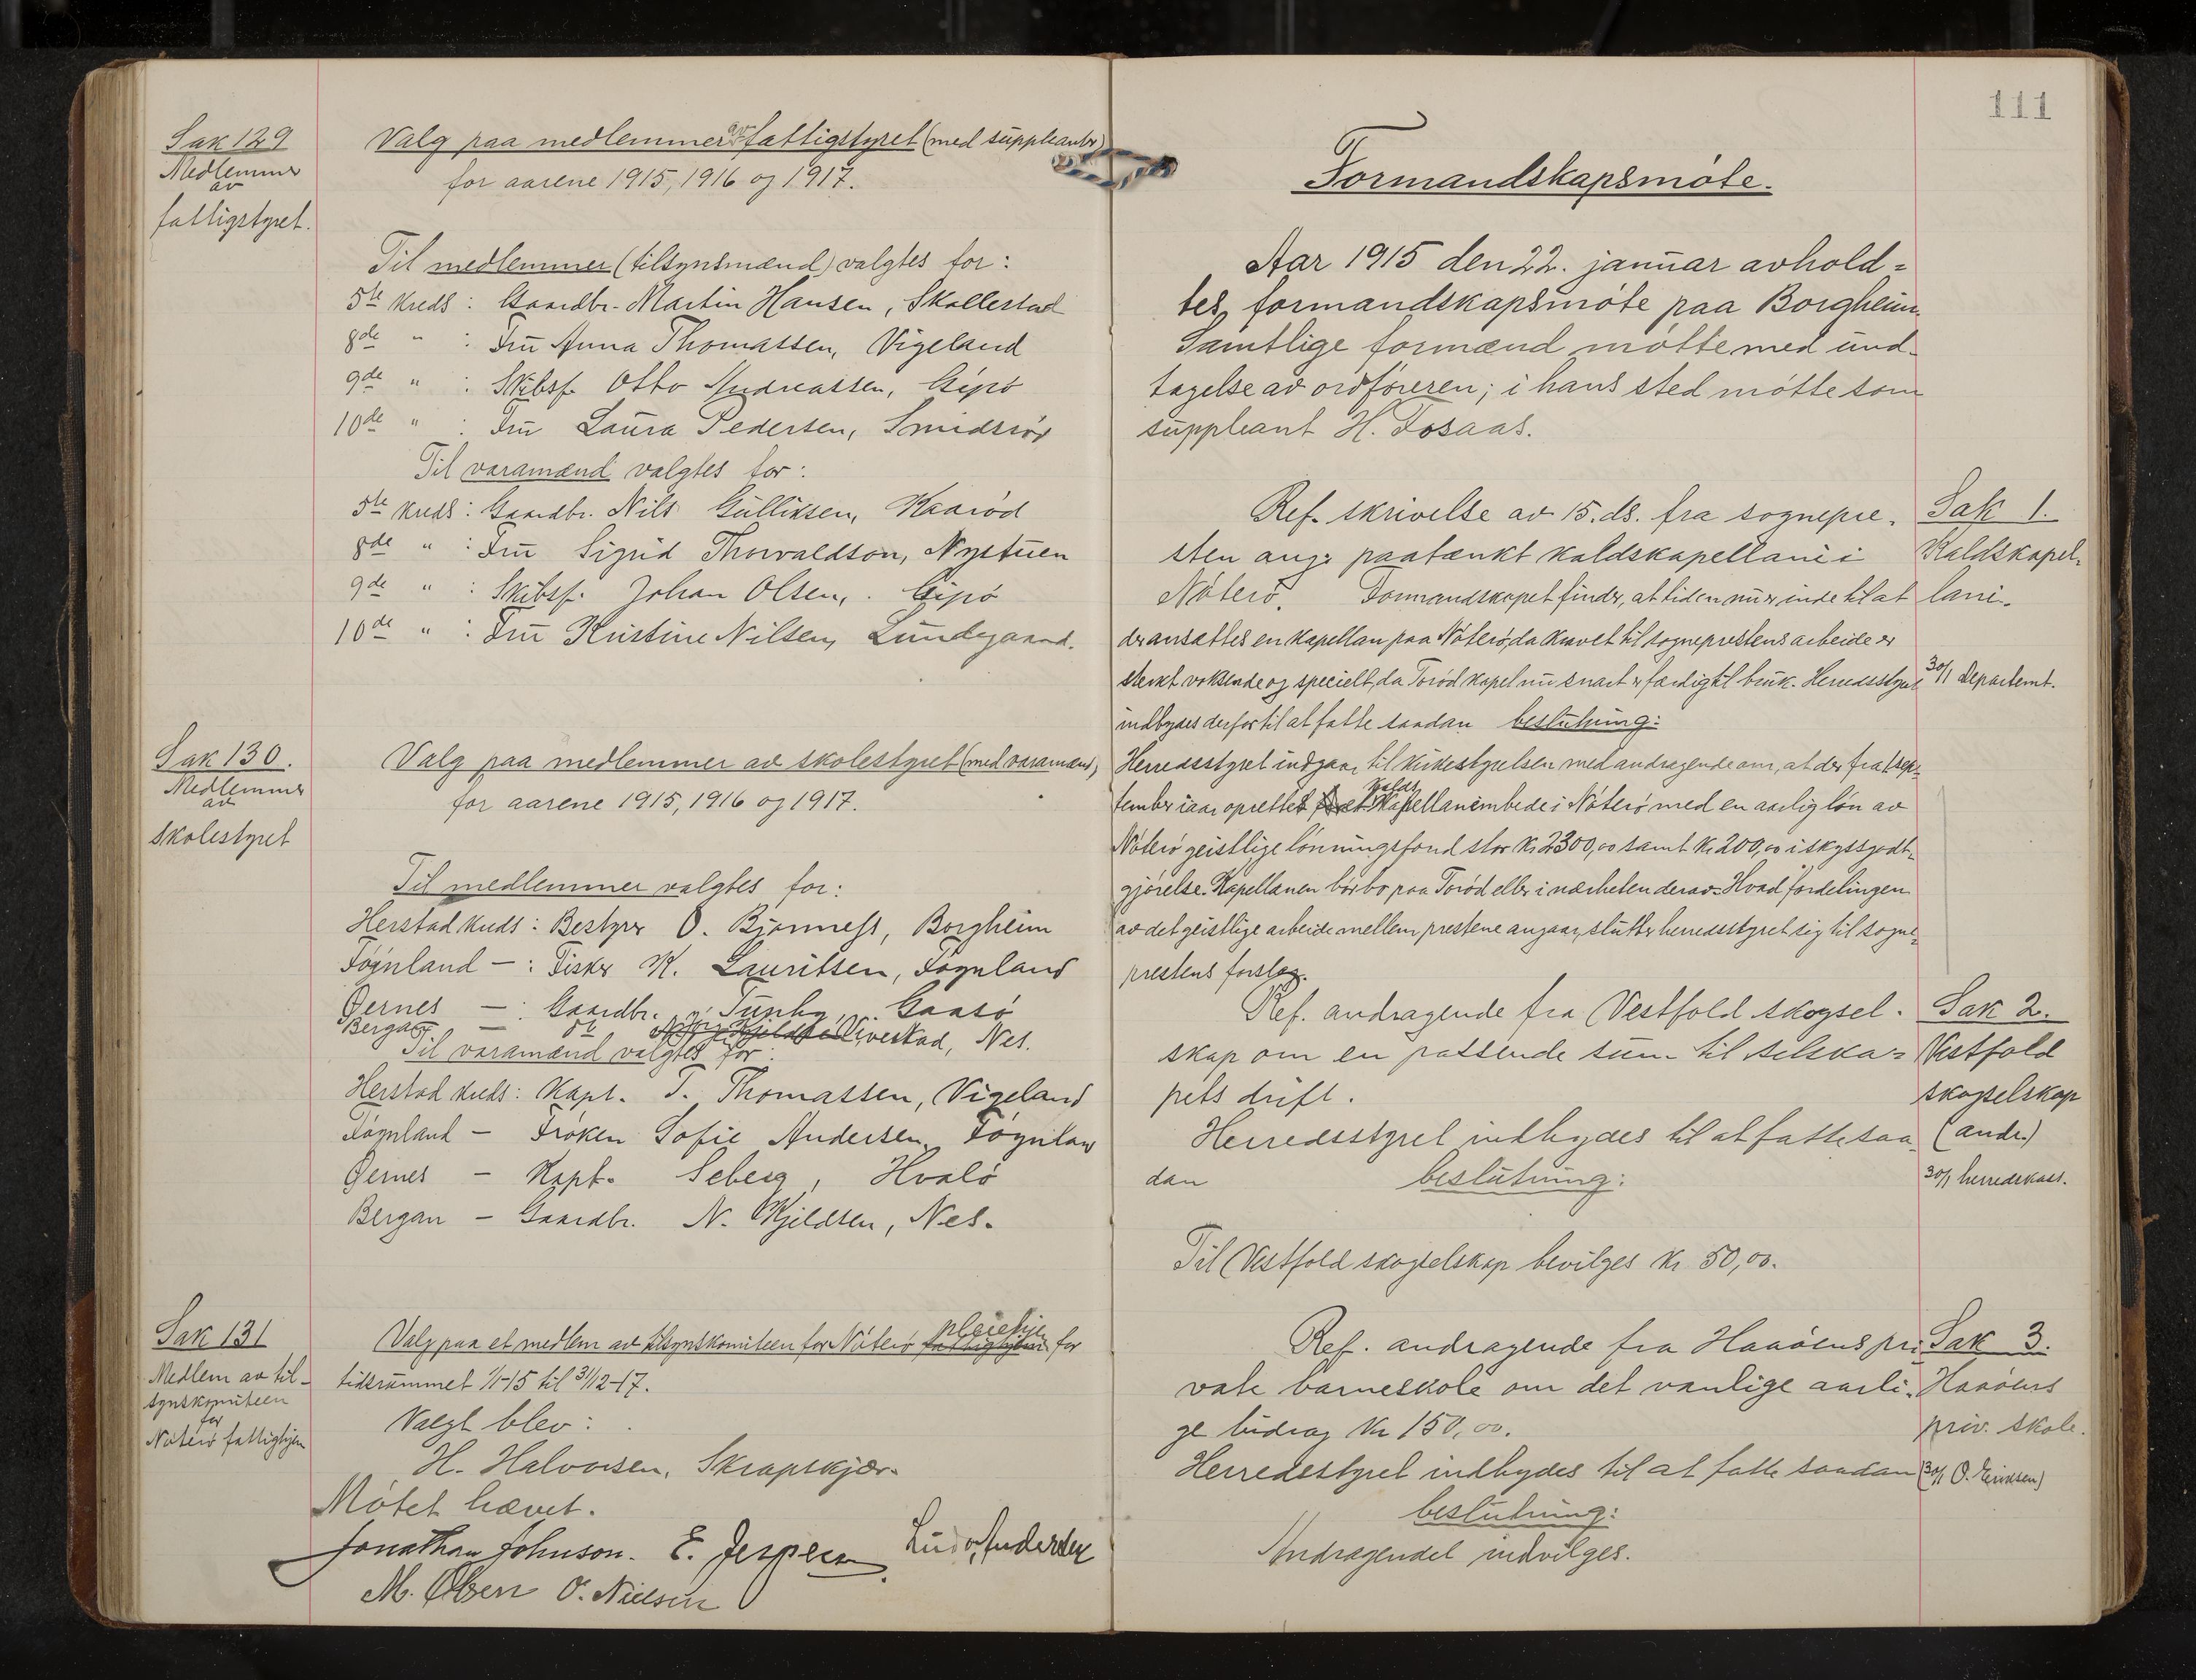 Sak 129
Medlemmer
av
fattigstyret.
Valg paa medlemmer av fattigstyret (med suppleanter)
for aarene 1915, 1916 og 1917.
Til medlemmer (tilsynsmænd) valgtes for:
5te kreds: Gaardbr. Martin Hansen, Skallestad
8de " : Fru Anna Thomassen, Vigeland
9de " : Skibsf. Otto Andreassen, Gipø
10de " : Fru Laura Pedersen, Smidsrød
Til varamænd valgtes for:
5te kreds: Gaardbr. Nils Gulliksen, Kaarød
8de " : Fru Sigrid Thorvaldson, Nystuen
9de " : Skibsf. Johan Olsen, Gipø
10de " : Fru Kristine Nilsen, Lundegaard.
Sak 130.
Medlemmer
av
skolestyret
Valg paa medlemmer av skolestyret (med varamænd)
for aarene 1915, 1916 og 1917.
Til medlemmer valgtes for:
Herstad kreds: Bestyrer O. Bjønness, Borgheim
Føynland — : Fisker K. Lauritsen, Føynland
Øernes — : Gaardbr. Tunby, Gaasø
Bergan — Livestad, Nes.
Til varamænd valgtes for:
Herstad kreds: Kapt. T. Thomassen, Vigeland
Føynland — Frøken Sofie Andersen, Føynland
Øernes — Kapt. Seberg, Hvalø
Bergan — Gaardbr. N. Kjeldsen, Nes.
Sak 131
Medlem av til-
synskomiteen
for
Nøterø fattighjem
Valg paa et medlem av tilsynskomiteen for Nøterø fattighjem pleiehje for
tidsrummet 1/1-15 til 31/12-17.
Valgt blev:
H. Halvorsen, Skrapskjær.
Møtet hævet.
Jonathan Johnson. E. Jespersen Ludv. Andersen
M. Olsen O. Nielsen
111
Formandskapsmøte.
Aar 1915 den 22. januar avhold=
tes formandskapsmøte paa Borgheim.
Samtlige formænd møtte med und-
tagelse av ordføreren; i hans sted møtte som
suppleant H. Fosaas.
Sak 1.
Kaldskapel-
lani.
30/1 Departemt.
Ref. skrivelse av 15. ds. fra sognepre-
sten ang. paatænkt kaldskapellani i
Nøterø. Formandskapet finder, at tiden nu er inde til at
der ansættes en kapellan paa Nøterø, da kravet til sogneprestens arbeide er
sterkt voksende og specielt, da Torød kapel nu snart er færdig til bruk. Herredsstyret
indbydes derfor til at fatte saadan beslutning:
Herredsstyret indgaar til kirkestyrelsen med andragende om, at der fra 1 sep-
tember iaar oprettes kalds kapellanembede i Nøterø med en aarlig løn av
Nøterø geistlige lønningsfond stor kr 2300,00 samt kr 200,00 i skyssgodt-
gjørelse. Kapellanen bør bo paa Torød eller i nærheten derav. Hvad fordelingen
av det geistlige arbeide mellem prestene angaar, slutter herredsstyret sig til sogne-
prestens forslag.
Sak 2.
Vestfold
skogselskap
(andr.)
30/1 herredskass.
Ref. andragende fra Vestfold skogsel-
skap om en passende sum til selska=
pets drift.
Herredsstyret indbydes til at fatte saa-
dan beslutning:
Til Vestfold skogselskap bevilges kr 50,00.
Sak 3.
Haaøens
priv. skole.
(30/1 O. Eriksen)
Ref. andragende fra Haaøens pri-
vate barneskole om det vanlige aarli-
ge bidrag kr 150,00.
Herredsstyret indbydes til at fatte saadan
beslutning:
Andragendet indvilges.